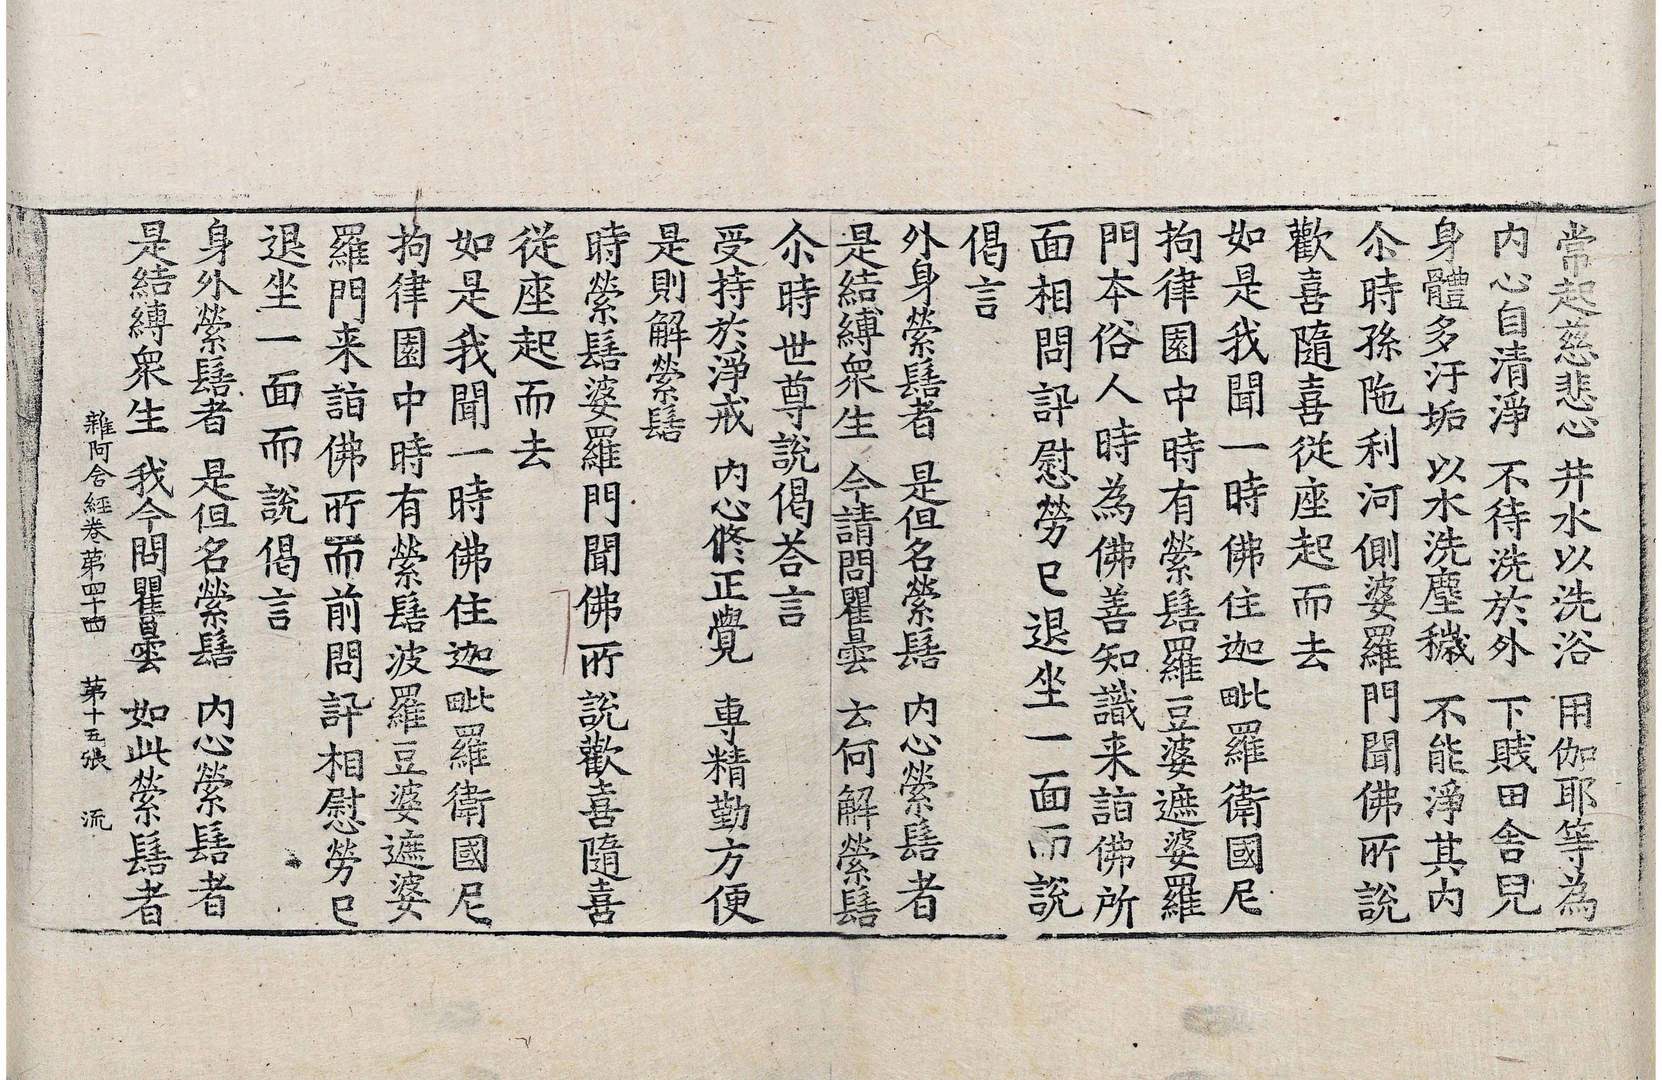 常起慈悲心　井水以洗浴　用伽耶等為
内心自清淨　不待洗於外　下賤田舍兒
身體多汙垢　以水洗塵穢　不能淨其内
尒時孫陁利河側婆羅門聞佛所說
歡喜隨喜從座起而去
如是我聞一時佛住迦毗羅衛國尼
拘律園中時有縈髻羅豆婆遮婆羅
門本俗人時為佛善知識来詣佛所
面相問訊慰勞已退坐一面而說
偈言
外身縈髻者　是但名縈髻　内心縈髻者
是結縛衆生　今請問瞿曇　云何解縈髻
尒時世尊說偈荅言
受持於淨戒　内心修正覺　専精勤方便
是則解縈髻
時縈髻婆羅門聞佛所說歡喜隨喜
從座起而去
如是我聞一時佛住迦毗羅衛國尼
拘律園中時有縈髻波羅豆婆遮婆
羅門来詣佛所而前問訊相慰勞已
退坐一面而說偈言
身外縈髻者　是但名縈髻　内心縈髻者
是結縛衆生　我今問瞿曇　如此縈髻者
雜阿含經卷第四十四　第十五張　流